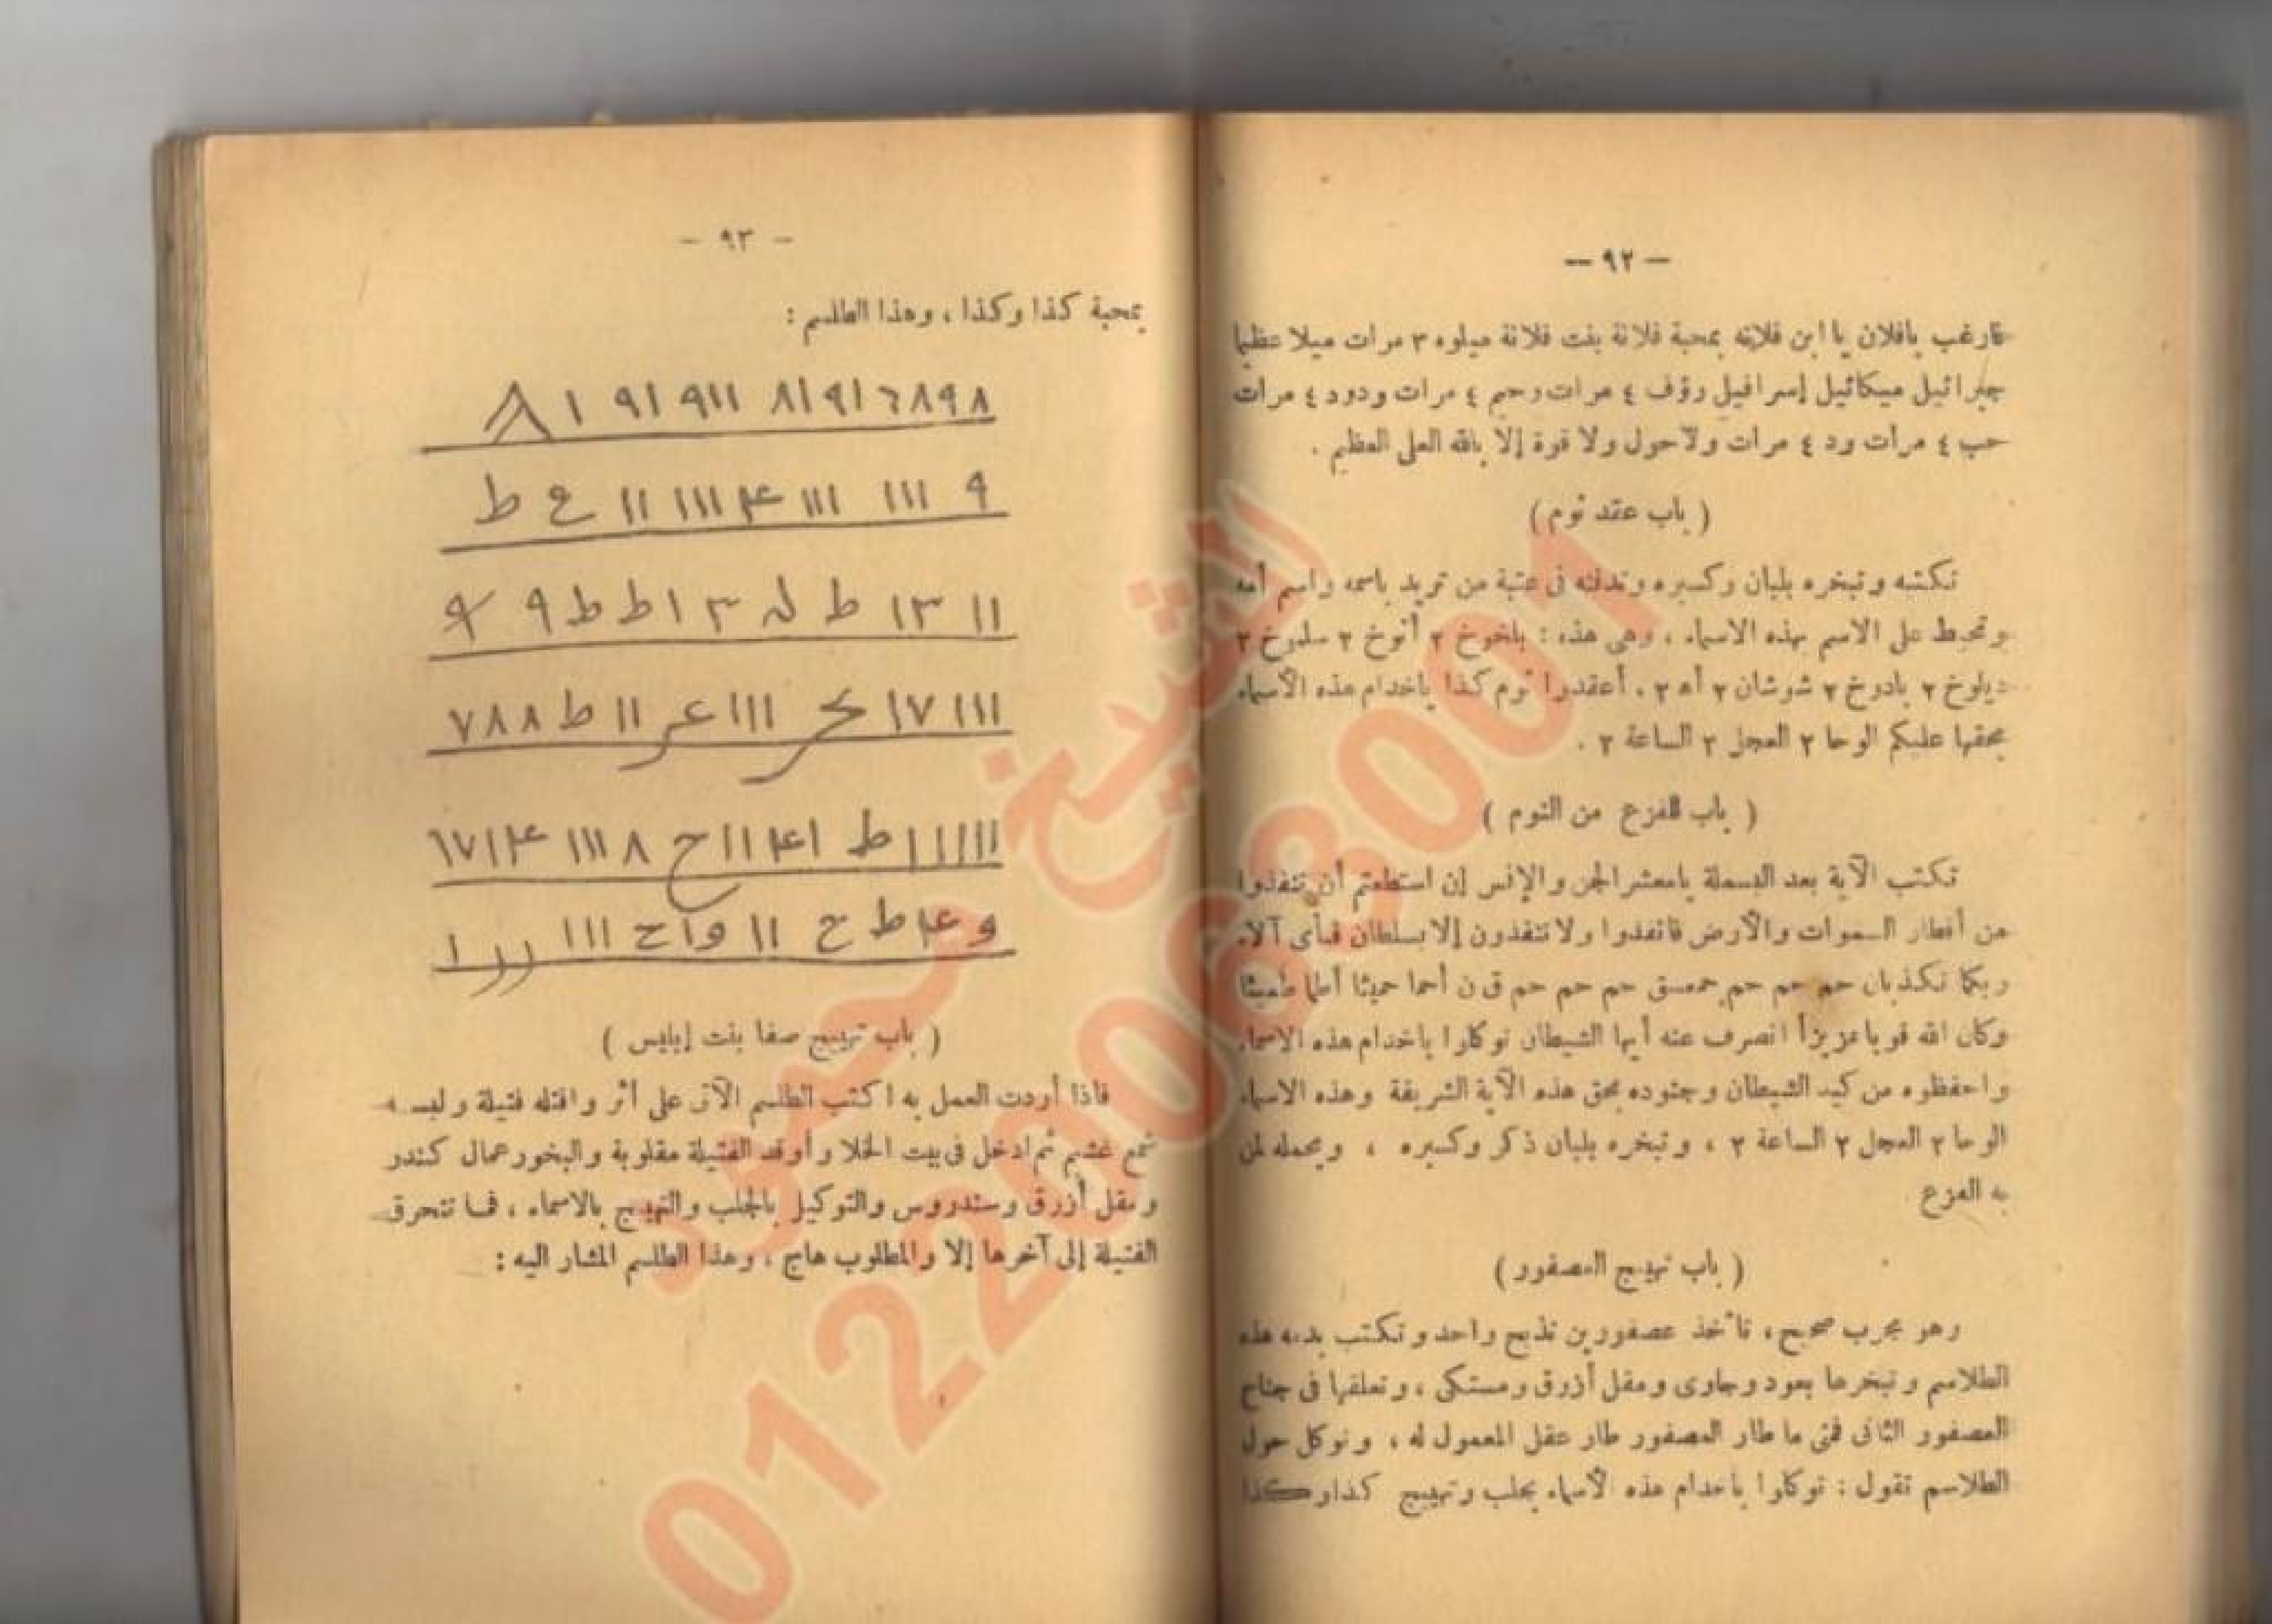 — ٩٢ —
فارغب يافلان يا ابن فلانه بمحبة فلانة بنت فلانة ميلوه ٣ مرات ميلا عظيما
جبرائيل ميكائيل إسرافيل رؤف ٤ مرات رحيم ٤ مرات ودود ٤ مرات
حب ٤ مرات ود ٤ مرات ولا حول ولا قوة إلا بالله العلى العظيم .
( باب عقد نوم )
تكتبه وتبخره بلبان وكسبره وتدفنه فى عتبة من تريد باسمه واسم أمه
وتحبط على الاسم بهذه الاسماء ، وهى هذه : بلخوخ ٢ أنوخ ٢ سلوخ ٢
ديلوخ ٢ بادوخ ٢ شوشان ٢ أه ٢ . أعقدوا نوم كذا ياخدام هذه الأسماء
بحقها عليكم الوحا ٢ العجل ٢ الساعة ٢ .
( باب للفزع من النوم )
تكتب الآية بعد البسملة يامعشر الجن والإنس إن استطعتم أن تنفذوا
من أقطار السموات والأرض فانفذوا ولا تنفذون إلا بسلطان فبأى آلاء
ربكما تكذبان حم حم حم حمعسق حم حم حم ق ن أحما حميثا أطما طميثا
وكان الله قويا عزيزاً انصرف عنه أيها الشيطان توكلوا ياخدام هذه الاسماء
واحفظوه من كيد الشيطان وجنوده بحق هذه الآية الشريفة وهذه الاسماء
الوحا ٢ العجل ٢ الساعة ٢ ، وتبخره بلبان ذكر وكسبره ، ويحمله لمن
به الفزع
( باب تهييج العصفور )
وهو مجرب صحيح ، تأخذ عصفورين تذبح واحد وتكتب بدمه هذه
الطلاسم وتبخرها بعود وجاوى ومقل أزرق ومستكى ، وتعلقها فى جناح
العصفور الثانى فمتى ما طار العصفور طار عقل المعمول له ، وتوكل حول
الطلاسم تقول : توكلوا ياخدام هذه الأسماء بجلب وتهييج كذا وكذا
— ٩٣ —
بمحبة كذا وكذا ، وهذا الطلسم :
( باب تهييج صفا بنت إبليس )
فاذا أردت العمل به اكتب الطلسم الآتى على أثر وافتله فتيلة ولبسه
شمع غشيم ثم ادخل فى بيت الخلا وأوقد الفتيلة مقلوبة والبخور عمال كندر
ومقل أزرق وسندروس والتوكيل بالجلب والتهييج بالاسماء ، فما تنحرق
الفتيلة إلى آخرها إلا والمطلوب هاج ، وهذا الطلسم المشار اليه :
الشيخ محمود
01220068001